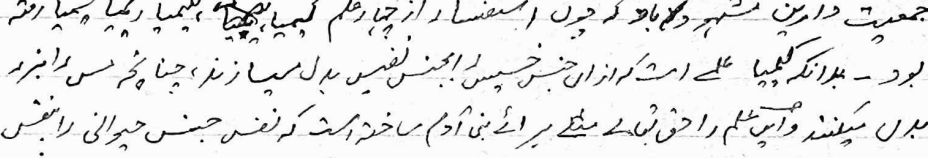 جمعیت دارین مشہود باد کہ چون استفسار از چہار علم کیمیا، لیمیا، ریمیا، سیمیا رفتہ
بود ۔ بدانکہ کیمیا علمے است کہ ازان جنس خسیس را بجنس نفیس بدل میسازند، چنانچہ مس را بزر
بدل میکنند و این علم را حق تعالےٰ برائے بنی آدم ساختہ است کہ نفس جنس حیوانی را بنفس